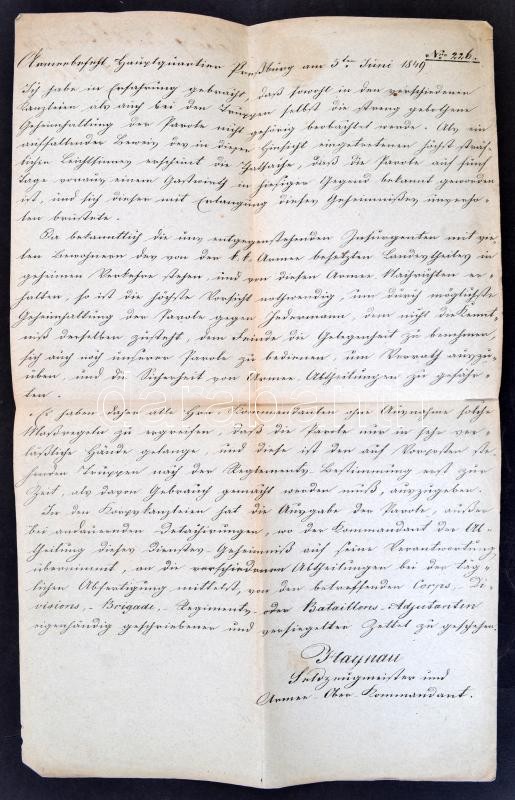 Nro 226.
Armeebefehl, Hauptquartier Preßburg am 5ten Juni 1849
Ich habe in Erfahrung gebracht, daß sowohl in den verschiedenen
Kanzleien als auch bei den Truppen selbst die streng gebothene
Geheimhaltung der Parole nicht gehörig beobachtet werde. Als ein
auffallender Beweis des in dieser Hinsicht eingetretenen höchst sträf-
lichen Leichtsinns erscheint die Thatsache, daß die Parole auf fünf
Tage voraus einem Gastwirth in hiesiger Gegend bekannt geworden
ist, und sich dieser mit Erlangung dieses Geheimnißes ungescheu-
ten brüstete.
Da bekanntlich die uns entgegenstehenden Insurgenten mit vie-
len Bewohnern des von der k. k. Armee besetzten Landestheiles in
geheimem Verkehre stehen, und von diesen Armee Nachrichten er-
halten, so ist die höchste Vorsicht nothwendig, um durch möglichste
Geheimhaltung der Parole gegen Jedermann, dem nicht die Kennt-
niß derselben zusteht, dem Feinde die Gelegenheit zu benehmen
sich auch noch unserer Parole zu bedienen, um Verrath auszu-
üben, und die Sicherheit von Armee-Abtheilungen zu gefähr-
den.
Es haben daher alle Hrn. Kommandanten ohne Ausnahme solche
Maßregeln zu ergreifen, daß die Parole nur in sehr ver-
läßliche Hände gelange, und diese ist den auf Vorposten ste-
henden Truppen nach der Reglements-Bestimmung erst zur
Zeit, als davon Gebrauch gemacht werden muß, auszugeben.
In den Korpskanzleien hat die Ausgabe der Parole, außer
bei andauernden Detachirungen, wo der Kommandant der Ab-
theilung dieses Dienstes-Geheimniß auf seine Verantwortung
übernimmt, an die verschiedenen Abtheilungen bei der täg-
lichen Abfertigung mittelst, von den betreffenden Corps-, Di-
visions-, Brigade-, Regiments- oder Bataillons-Adjutanten
eigenhändig geschriebener und versiegelter Zettel zu geschehen.
Haynau
Feldzeugmeister und
Armee-Ober-Kommandant.
darabanth.com